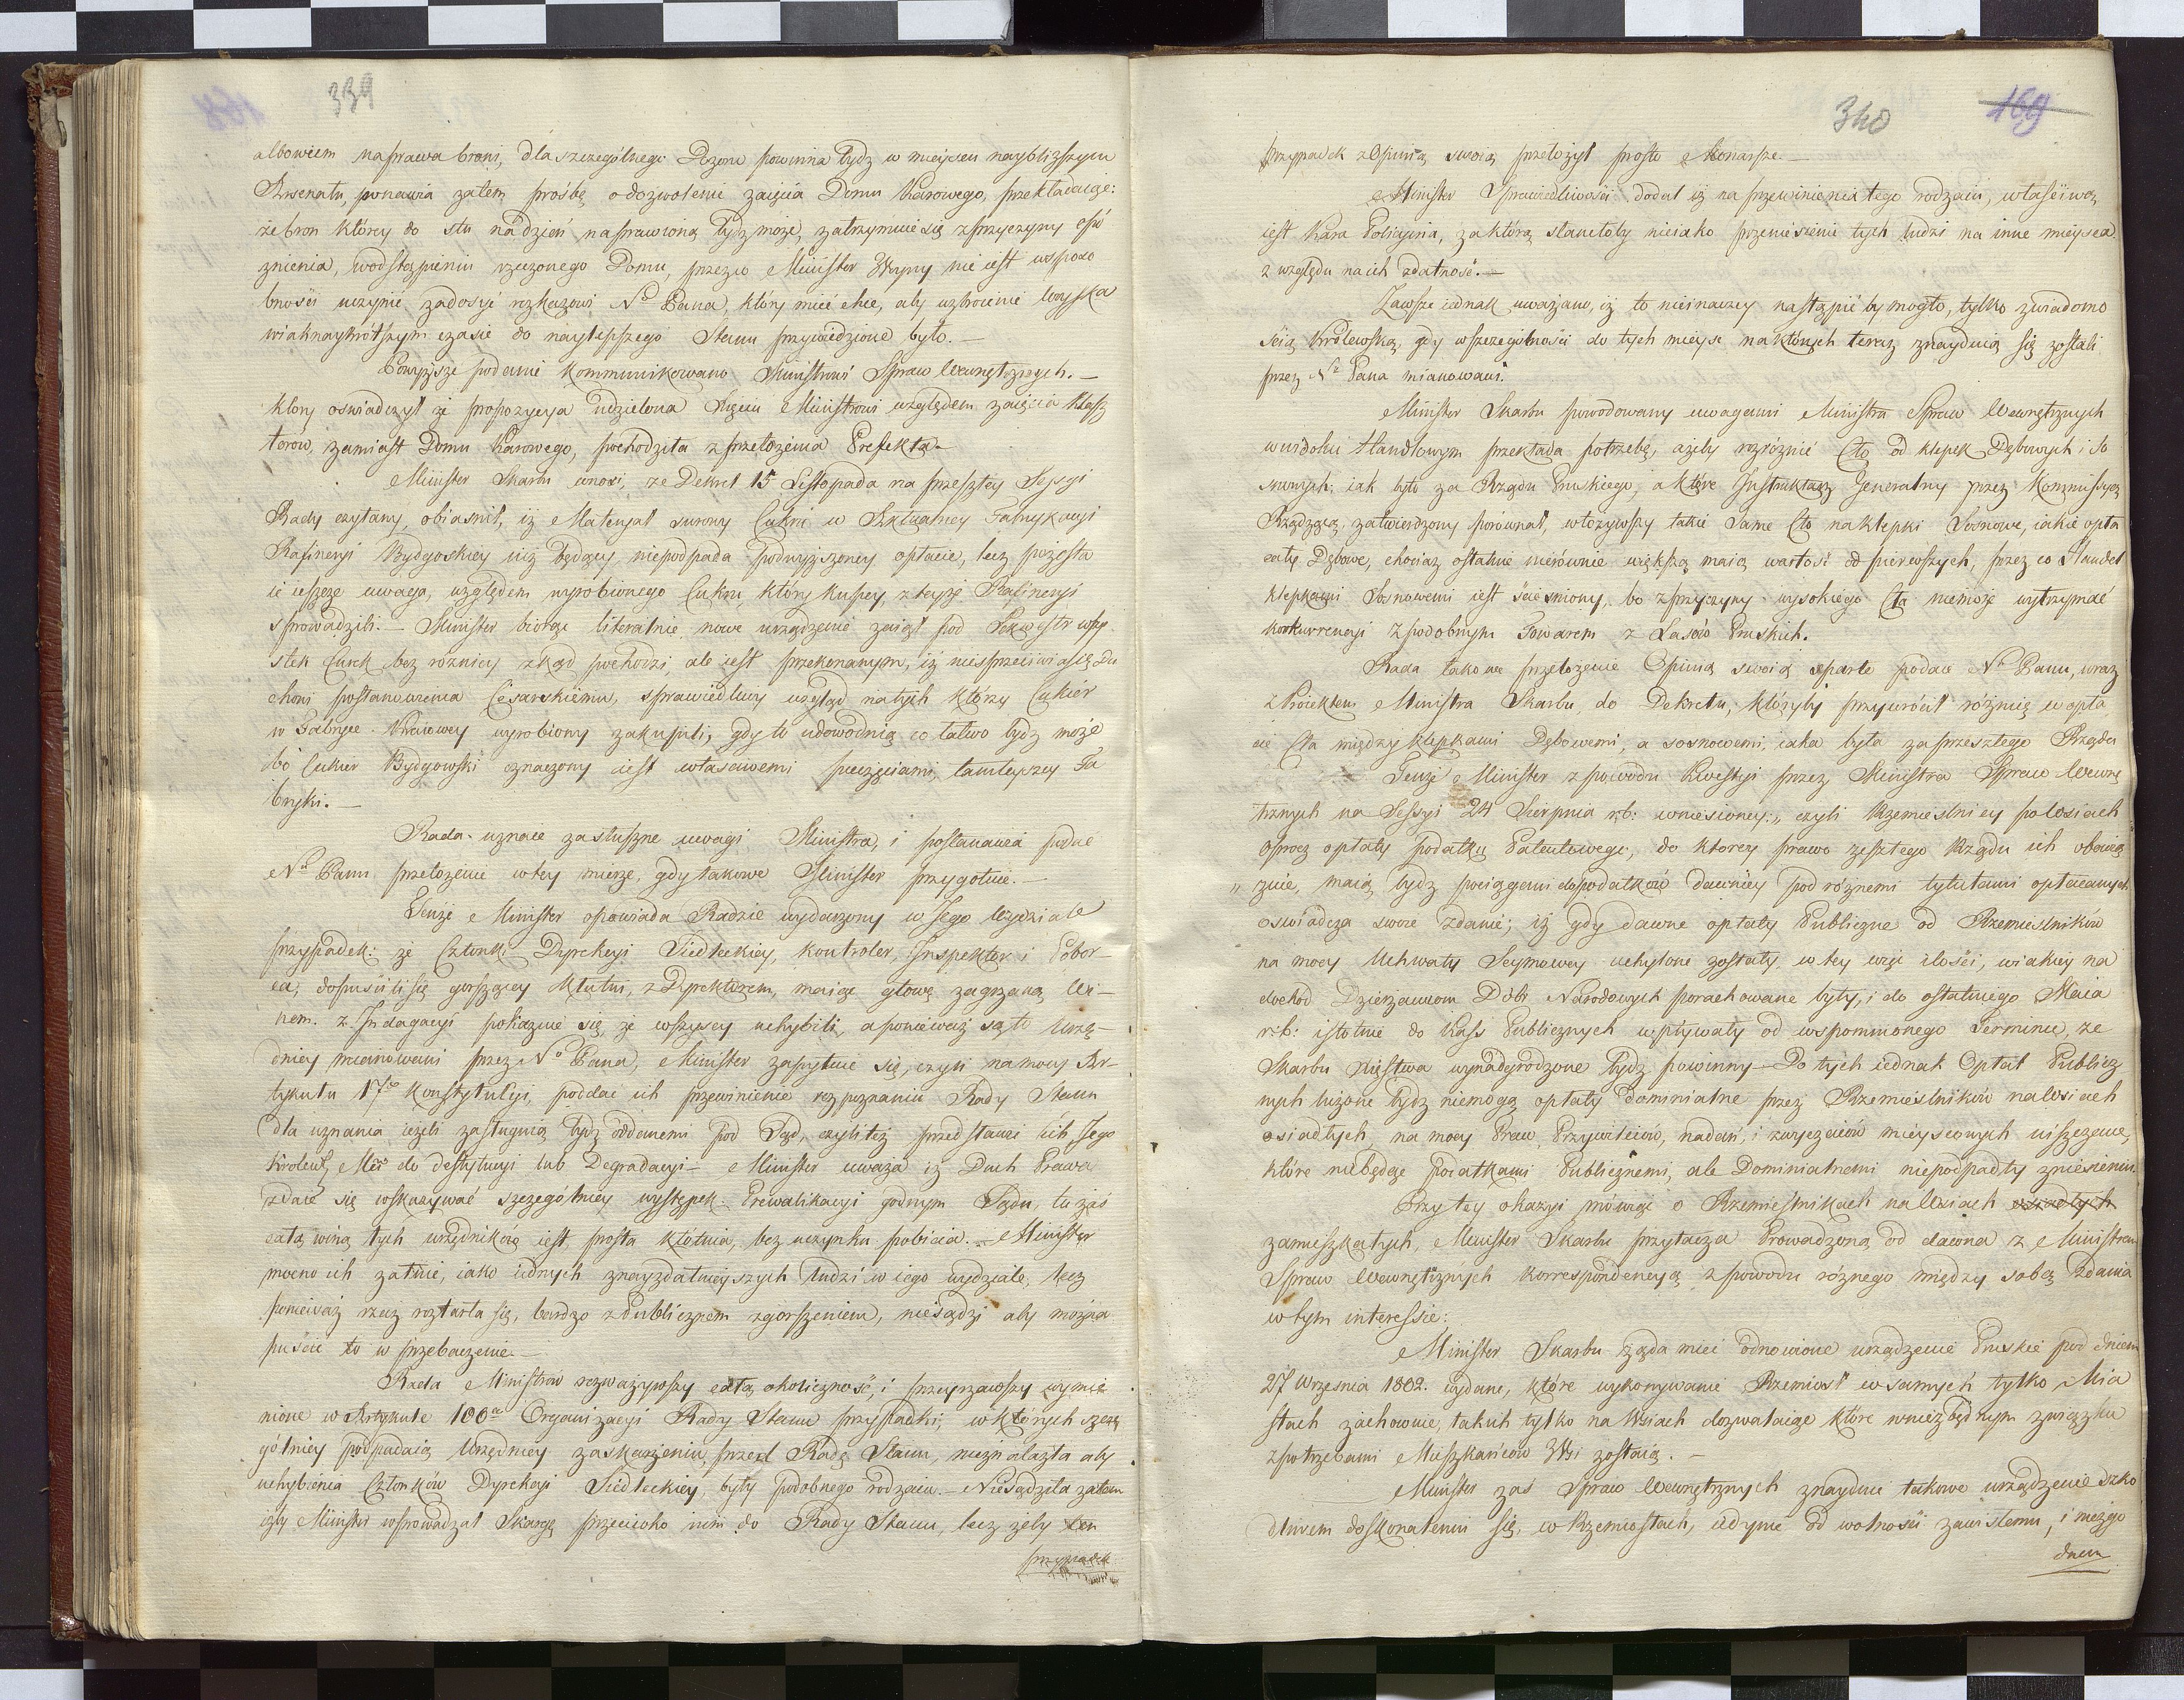 339
albowiem naprawa broni, dla szczególnego Dozoru powinna bydź w mieyscu naybliższym
Arsenału, ponawia zatem prośbę o dozwolenie zaięcia Domu Karowego, przekładaiąc:
że broń którey do stu na dzień naprawioną bydź może, zatrzymuie się z przyczyny opó
źnienia, w odstąpieniu rzeczonego Domu, przez co Minister Woyny nie iest w sposo
bności uczynić zadosyć rozkazowi No Pana, który mieć chce, aby uzbroienie Woyska
w iak naykrótszym czasie do naylepszego Stanu przywiedzione było. —
Powyższe podanie kommunikowano Ministrowi Spraw Wewnętrznych. —
który oświadczył że propozycya udzielona Xięciu Ministrowi względem zaięcia Klasz
torów, zamiast Domu Karowego, pochodziła z przełożenia Prefekta. —
Minister Skarbu wnosi, że Dekret 15 Listopada na przeszłey Sessyi
Rady czytany, obiaśnił, iż Materyał surowy Cukru w Aktualney Fabrykacyi
Rafineryi Bydgoskiey iuż będący, niepodpada podwyższoney opłacie, lecz pozosta
ie ieszcze uwaga, względem wyrobionego Cukru, który kupcy, z teyże Rafineryi
sprowadzili. Minister biorąc literalnie nowe urządzenie zaiął pod Sekwestr wszy
stek Cukier bez różnicy zkąd pochodzi, ale iest przekonanym, iż niesprzeciwia się Du
chowi postanowienia Cesarskiemu, sprawiedliwy wzgląd na tych którzy Cukier
w Fabryce Kraiowey wyrobiony zakupili, gdy to udowodnią co łatwo bydź może
bo Cukier Bydgowski znaczony iest własciwemi pieczęciami tamteyszey Fa
bryki. —
Rada uznaie za słuszne uwagi Ministra, i postanawia podać
No Panu przełożenie w tey mierze, gdy takowe Minister przygotuie. —
Tenże Minister opowiada Radzie wydarzony w Jego Wydziale
przypadek: że Członki Dyrekcyi Siedleckiey, Kontroler, Inspektor i Pobor-
ca, dopuścili się gorszącey kłutni, z Dyrektorem, maiąc głowę zagrzaną Wi-
nem. z Indagacyi pokazuie się, że wszyscy uchybili, a ponieważ są to Urzę-
dnicy mianowani przez No Pana, Minister zapytuie się, czyli na mocy Ar-
tykułu 17o Konstytucyi, poddać ich przewinienie rozpoznaniu Rady Stanu
dla uznania ieżeli zasługuią bydź oddanemi pod Sąd, czyli też przedstawić ich Jego
Królews. Mci do destytucyi lub Degradacyi — Minister uważa iż Duch Prawa
zdaie się wskazywać szczególniey występek Prewarikacyi godnym Sądu, tu zaś
całą winą tych urzędników iest prosta kłótnia, bez uczynku pobicia. — Minister
mocno ich żałuie, iako iednych z nayzdatnieyszych ludzi w iego wydziale, lecz
ponieważ rzecz roztarła się, bardzo z Publicznem zgorszeniem, niesądzi aby można
puścić to w przebaczenie. —
Rada Ministrów rozważywszy całą okoliczność, i przeyrzawszy wymie
nione w Artykule 100m Organizacyi Rady Stanu przypadki, w których szcze
gólniey podpadaią Urzędnicy zaskarżeniu przed Radę Stanu, nieznalazła aby
uchybienia Członków Dyrekcyi Siedleckiey, były podobnego rodzaiu. — Niesądziła zatem
żeby Minister wprowadzał Skargę przeciwko nim do Rady Stanu, lecz żeby ten
przypadek
340
169
przypadek z Opinią swoią przełożył prosto Monarsze. —
Minister Sprawiedliwości dodał iż na przewinienia tego rodzaiu, właściwą
iest Kara Policyina, za którą stanęłoby nieiako przeniesienie tych ludzi na inne mieysca
z względu na ich zdatność. —
Zawsze iednak uważano, iż to nieinaczey nastąpić by mogło, tylko z wiadomo
ścią Królewską, gdy w szczególności do tych mieysc na których teraz znayduią się zostali
przez No Pana mianowani.
Minister Skarbu powodowany uwagami Ministra Spraw Wewnętrznych
w widoku Handlowym przekłada potrzebę, ażeby rozróżnić Cło od klepek Dębowych i So
snowych, iak było za Rządu Pruskiego, a które Instruktarz Generalny przez Kommissyą
Rządzącą, zatwierdzony porównał, włożywszy takie same Cło na klepki Sosnowe, iakie opła
caią Dębowe, chociaż ostatnie nierównie większą maią wartość od pierwszych, przez co Handel
klepkami Sosnowemi iest ścieśniony, bo z przyczyny wysokiego Cła niemoże wytrzymać
konkurrencyi z podobnym Towarem z Lasów Pruskich.
Rada takowe przełożenie Opinią swoią wsparte podaie No Panu, wraz
z Proiektem Ministra Skarbu do Dekretu, któryby przywrócił różnicę w opła
cie Cła między klepkami Dębowemi, a sosnowemi, iaka była za przeszłego Rządu
Tenże Minister z powodu Kwestyi przez Ministra Spraw Wewnę
trznych na Sessyi 24 Sierpnia r: b: wniesioney: „czyli Rzemieślnicy po Wsiach
oprócz opłaty podatku Patentowego, do którey prawo zeszłego Rządu ich obowią
„ zuie, maią bydź pociągani do podatków dawniey pod różnemi tytułami opłacanych
oświadcza swoie zdanie; iż gdy dawne opłaty Publiczne od Rzemieślników
na mocy Uchwały Seymowey uchylone zostały, w tey więc ilości, w iakiey na
dochód Dzierżawcom Dóbr Narodowych porachowane były, i do ostatniego Maia
r: b: istotnie do Kass Publicznych wpływały od wspomnionego Terminu, ze
Skarbu Xięstwa wynadgrodzone bydź powinny — Do tych iednak Opłat Publicz
nych liczone bydź niemogą opłaty Dominialne przez Rzemieślników na Wsiach
osiadłych, na mocy Praw, Przywileiów, nadań, i zwyczaiów mieyscowych uiszczane,
które niebędąc podatkami Publicznemi, ale Dominialnemi niepodpadły zniesieniu
Przy tey okazyi mówiąc o Rzemieślnikach na Wsiach osiadłych
zamieszkałych, Minister Skarbu przytacza Prowadzoną od dawna z Ministrem
Spraw Wewnętrznych korrespondencyą, z powodu różnego między sobą Zdania
w tym interessie:
Minister Skarbu żąda mieć odnowione urządzenie Pruskie pod dniem
27 Września 1802. wydane, które wykonywanie Rzemiosł w samych tylko Mia
stach zachowuie, takich tylko na Wsiach dozwalaiąc które w niezbędnym związku
z potrzebami Mieszkańców Wsi zostaią. —
Minister zaś Spraw Wewnętrznych znayduie takowe urządzenie szko
dliwem doskonaleniu się, w Rzemiosłach, iedynie od wolności zawisłemu, i niezgo
dnem